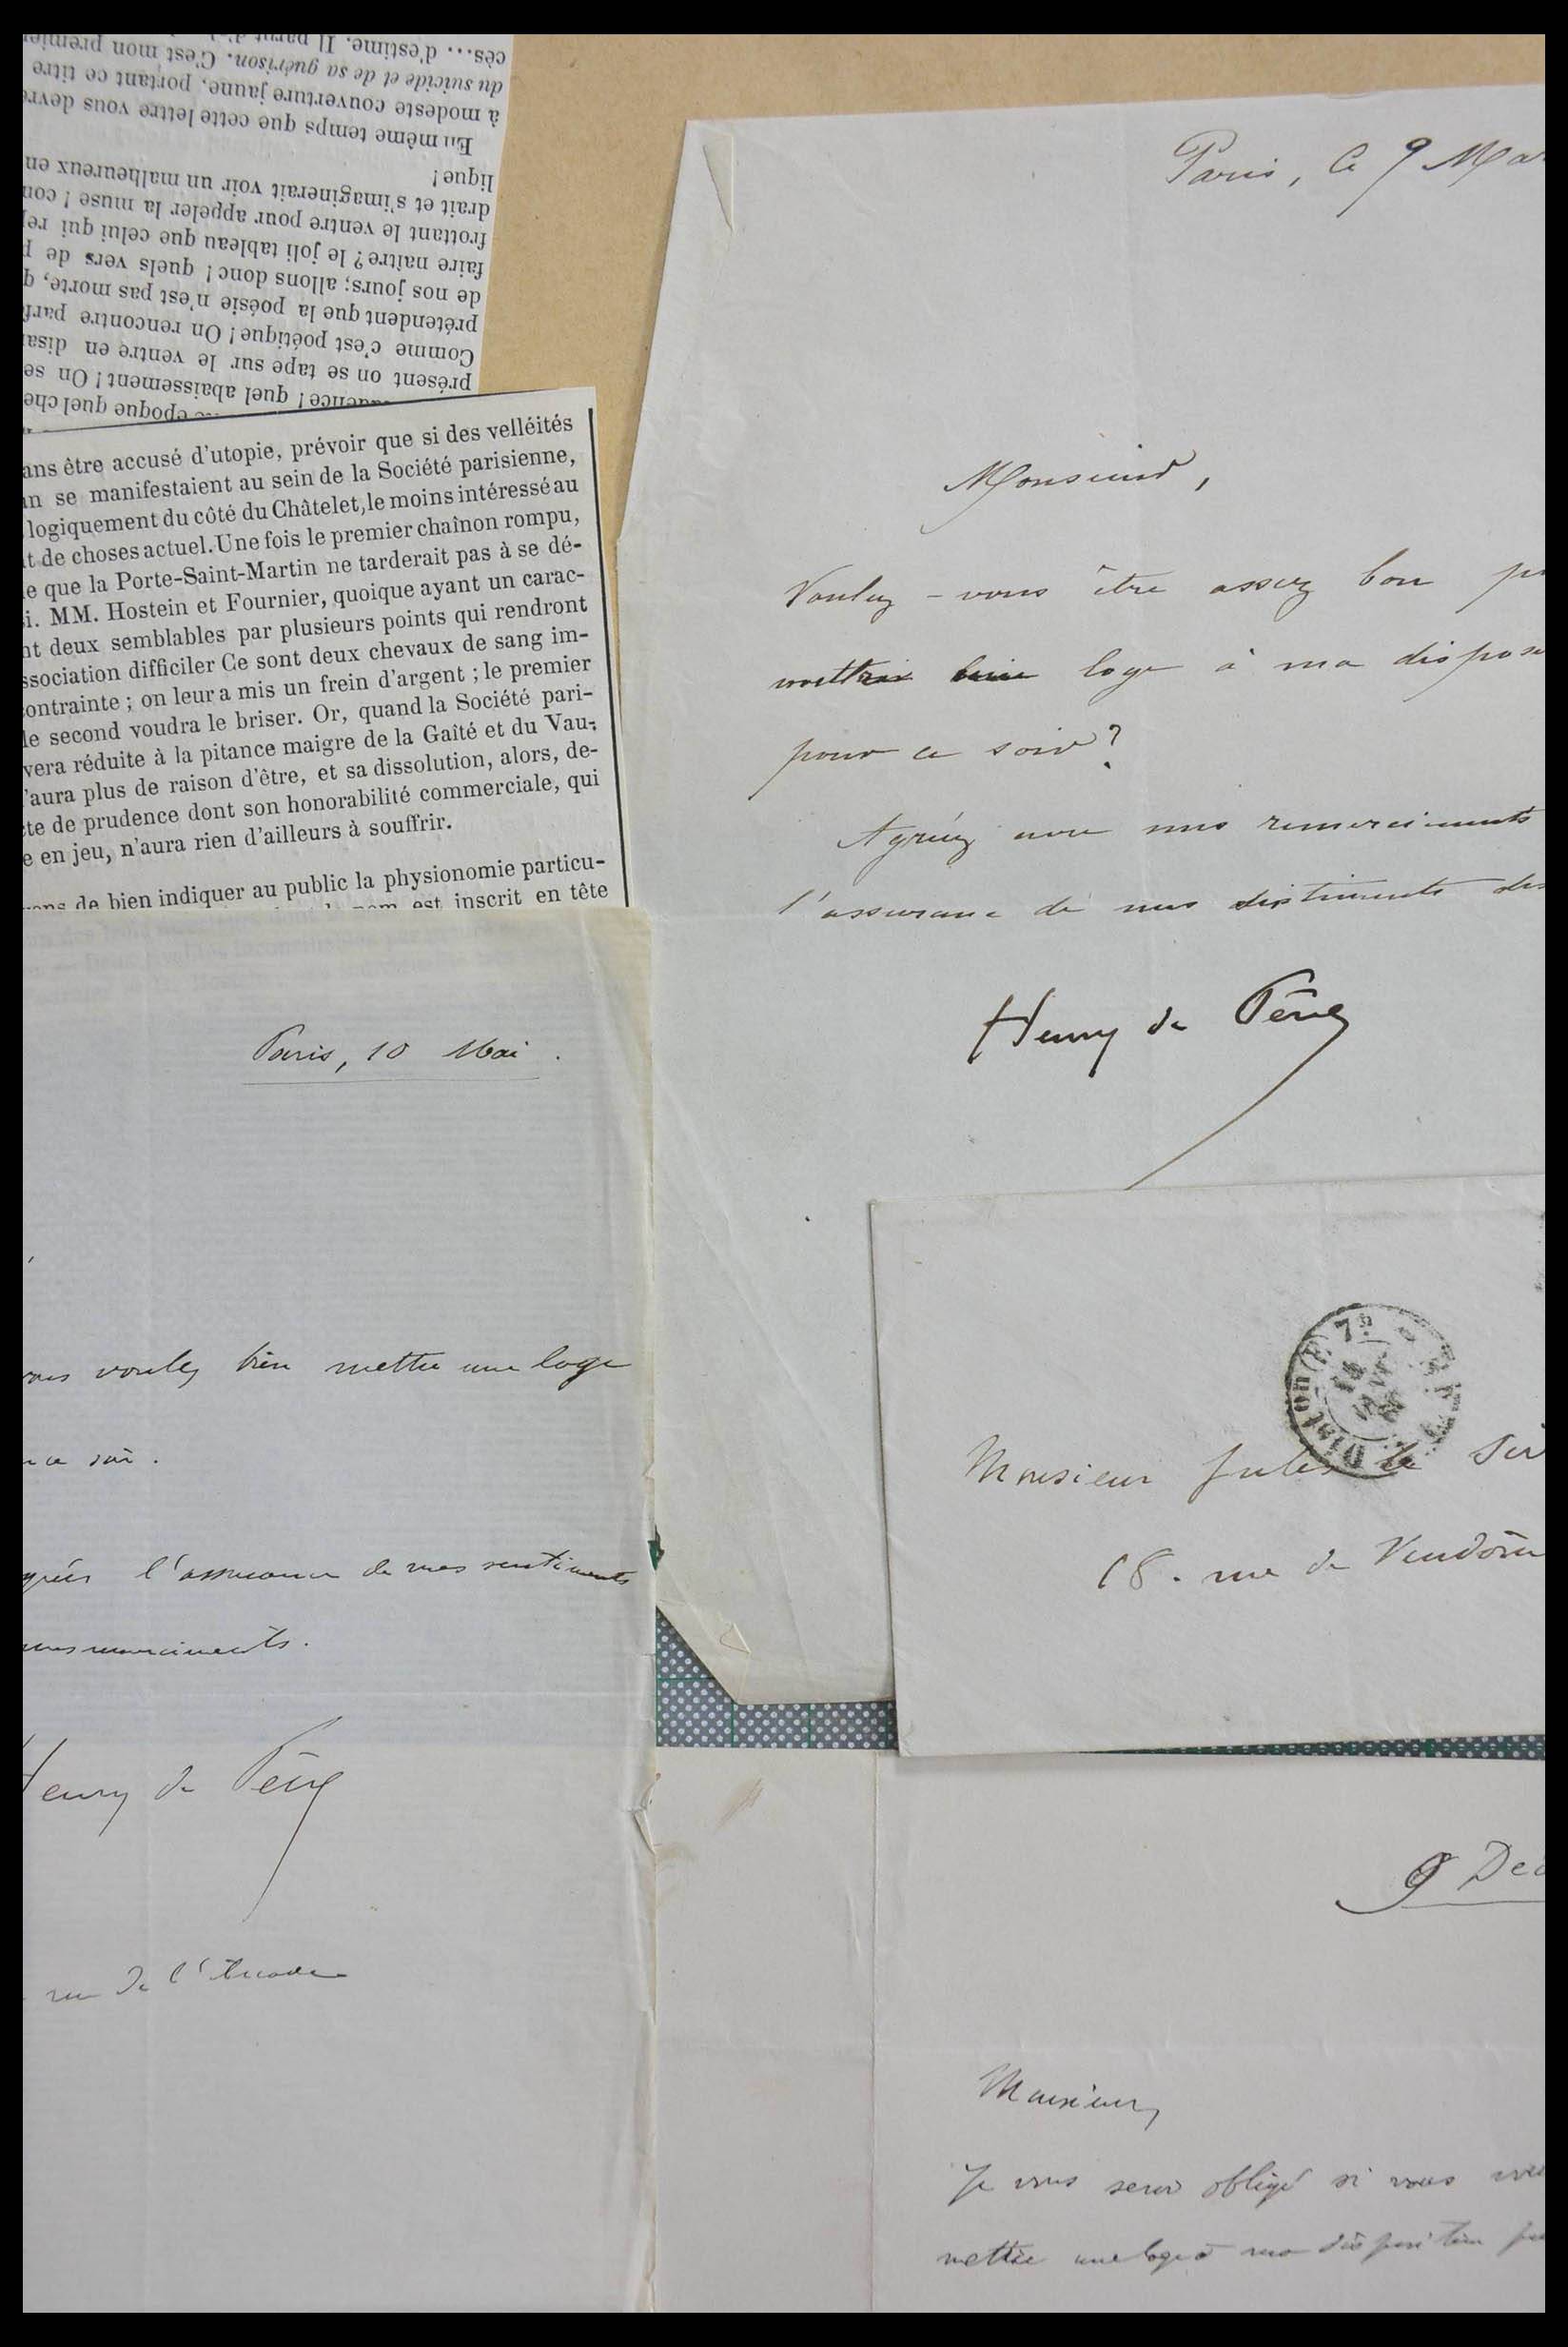 cès... d'estime. Il parut
du suicide et de sa guérison. C'est mon premier
à modeste couverture jaune, portant ce titre
En même temps que cette lettre vous devre
lique !
drait et s'imaginerait voir un malheureux en
frottant le ventre pour appeler la muse ! con
faire naître ? le joli tableau que celui qui re
de nos jours; allons donc ! quels vers de p
prétendent que la poésie n'est pas morte, q
Comme c'est poétique ! On rencontre parf
présent on se tape sur le ventre en disa
quel abaissement ! On se
époque quel che
ans être accusé d'utopie, prévoir que si des velléités
n se manifestaient au sein de la Société parisienne,
logiquement du côté du Châtelet, le moins intéressé au
t de choses actuel. Une fois le premier chaînon rompu,
e que la Porte-Saint-Martin ne tarderait pas à se dé-
i. MM. Hostein et Fournier, quoique ayant un carac-
nt deux semblables par plusieurs points qui rendront
ssociation difficiler Ce sont deux chevaux de sang im-
ontrainte ; on leur a mis un frein d'argent ; le premier
le second voudra le briser. Or, quand la Société pari-
vera réduite à la pitance maigre de la Gaîté et du Vau-
'aura plus de raison d'être, et sa dissolution, alors, de-
te de prudence dont son honorabilité commerciale, qui
e en jeu, n'aura rien d'ailleurs à souffrir.
ons de bien indiquer au public la physionomie particu-
nom est inscrit en tête
Paris, 10 Mai.
voulez bien mettre une loge
ce soir.
l'assurance de mes sentiments
remerciments.
Henry de Pène
rue de l'Arcade
Paris, Ce 9 Mar
Monsieur,
Voulez-vous être assez bon pr
mettre une loge à ma dispos
pour ce soir ?
Agréez avec mes remerciments
l'assurance de mes sentiments des
Henry de Pène
Monsieur Jules le Sir
18. rue de Vendôm
9 Dec
Monsieur,
Je vous serai obligé si vous
mettre une loge à ma disposition